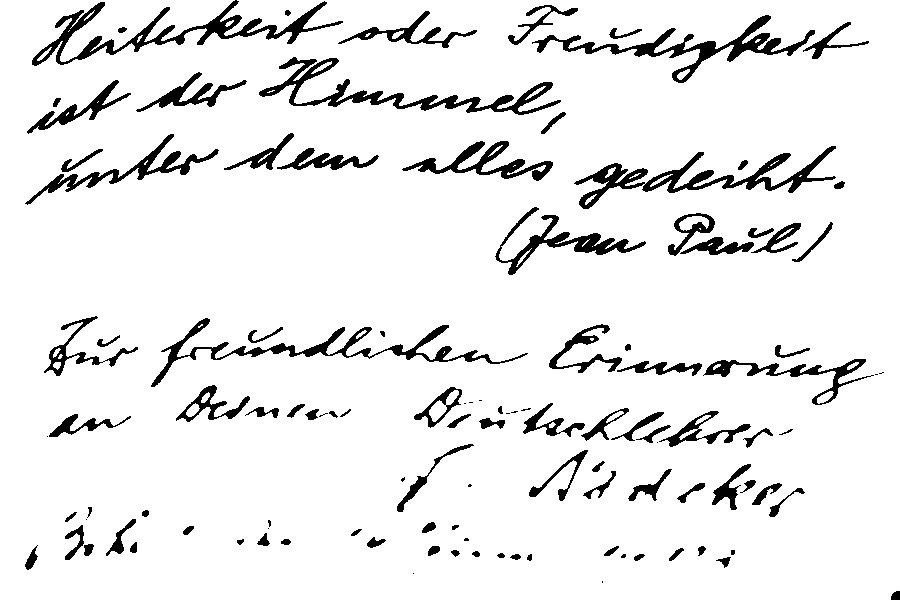 Heiterkeit oder Freudigkeit
ist der Himmel,
unter dem alles gedeiht.
(Jean Paul)
Zur freundlichen Erinnerung
an Deinen Deutschlehrer
F.